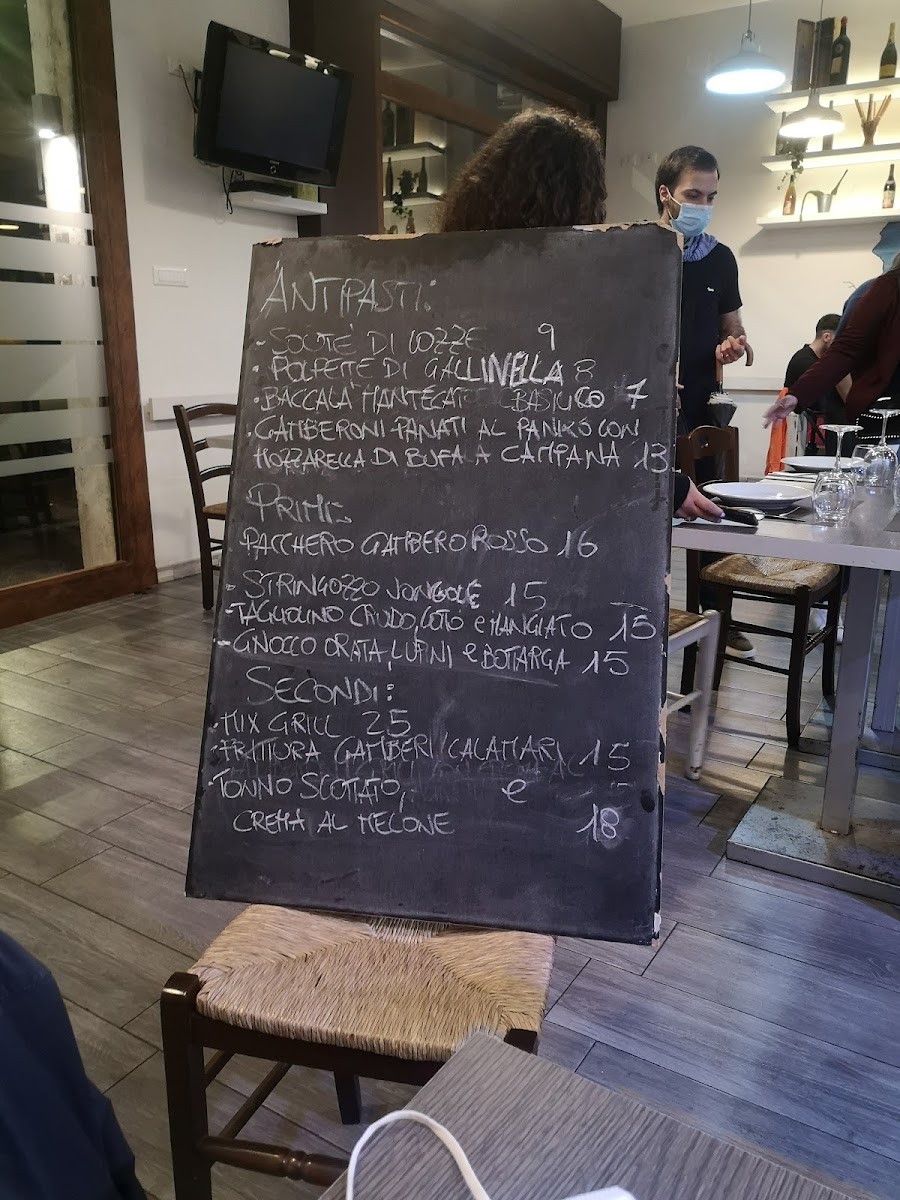 ANTIPASTI:
- SOUTÉ DI COZZE 9
- POLPETTE DI GALLINELLA 8
- BACCALA MANTECAT BASILICO 7
- GAMBERONI PANATI AL PANKO CON
MOZZARELLA DI BUFALA CAMPANA 13
PRIMI:
PACCHERO GAMBERO ROSSO 16
- STRINGOZZO VONGOLE 15
- TAGLIOLINO CRUDO, COTO e MANGIATO 15
- GNOCCO ORATA, LUPINI e BOTTARGA 15
SECONDI:
- MIX GRILL 25
- FRITTURA GAMBERI CALAMARI 15
- TONNO SCOTTATO, e
CREMA AL MELONE 18